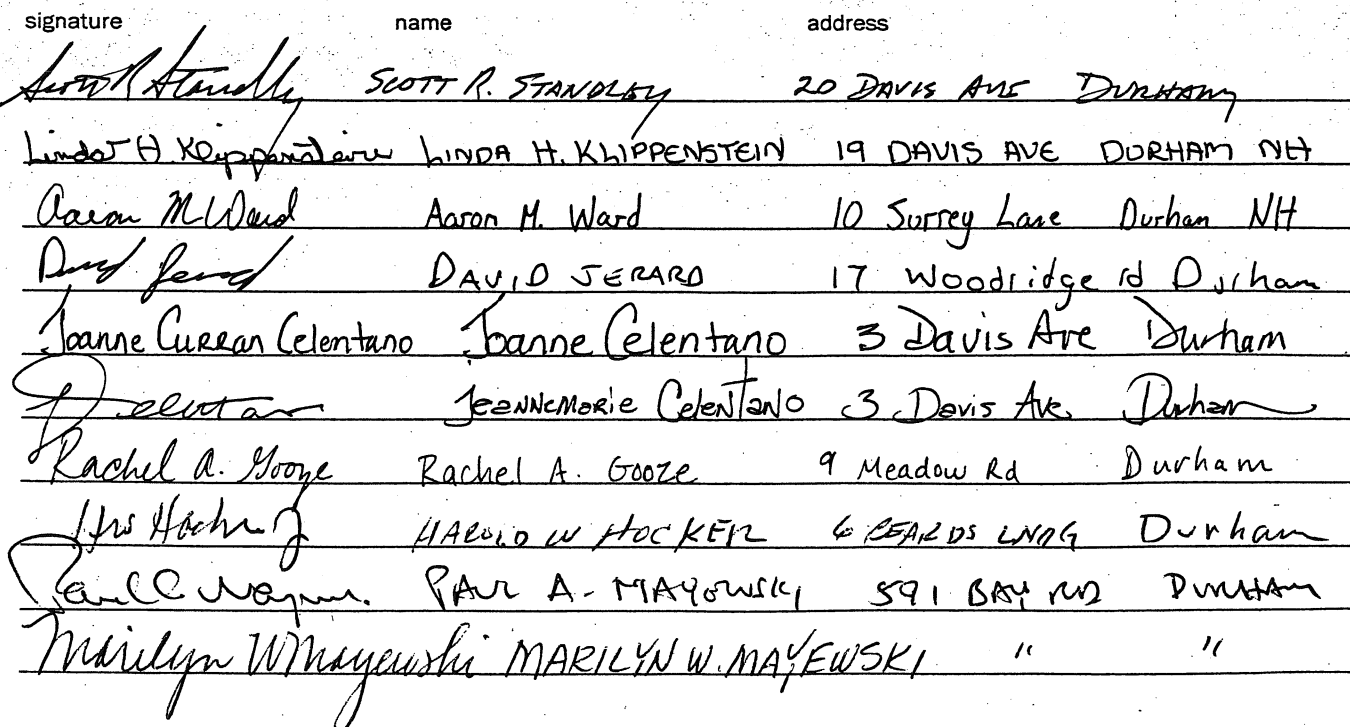 signature name address
Scott R Standley SCOTT R. STANDLEY 20 DAVIS AVE DURHAM
Linda H Klippenstein LINDA H. KLIPPENSTEIN 19 DAVIS AVE DURHAM NH
Aaron M Ward Aaron M. Ward 10 Surrey Lane Durham NH
David Jerard DAVID JERARD 17 Woodridge rd Durham
Joanne Curran Celentano Joanne Celentano 3 Davis Ave Durham
JeanneMarie Celentano 3 Davis Ave. Durham
Rachel A. Gooze Rachel A. Gooze 9 Meadow Rd Durham
HAROLD W HOCKER 6 BEARDS LNDG Durham
PAUL A. MAYEWSKI 591 BAY RD DURHAM
Marilyn W Mayewski MARILYN W. MAYEWSKI " "